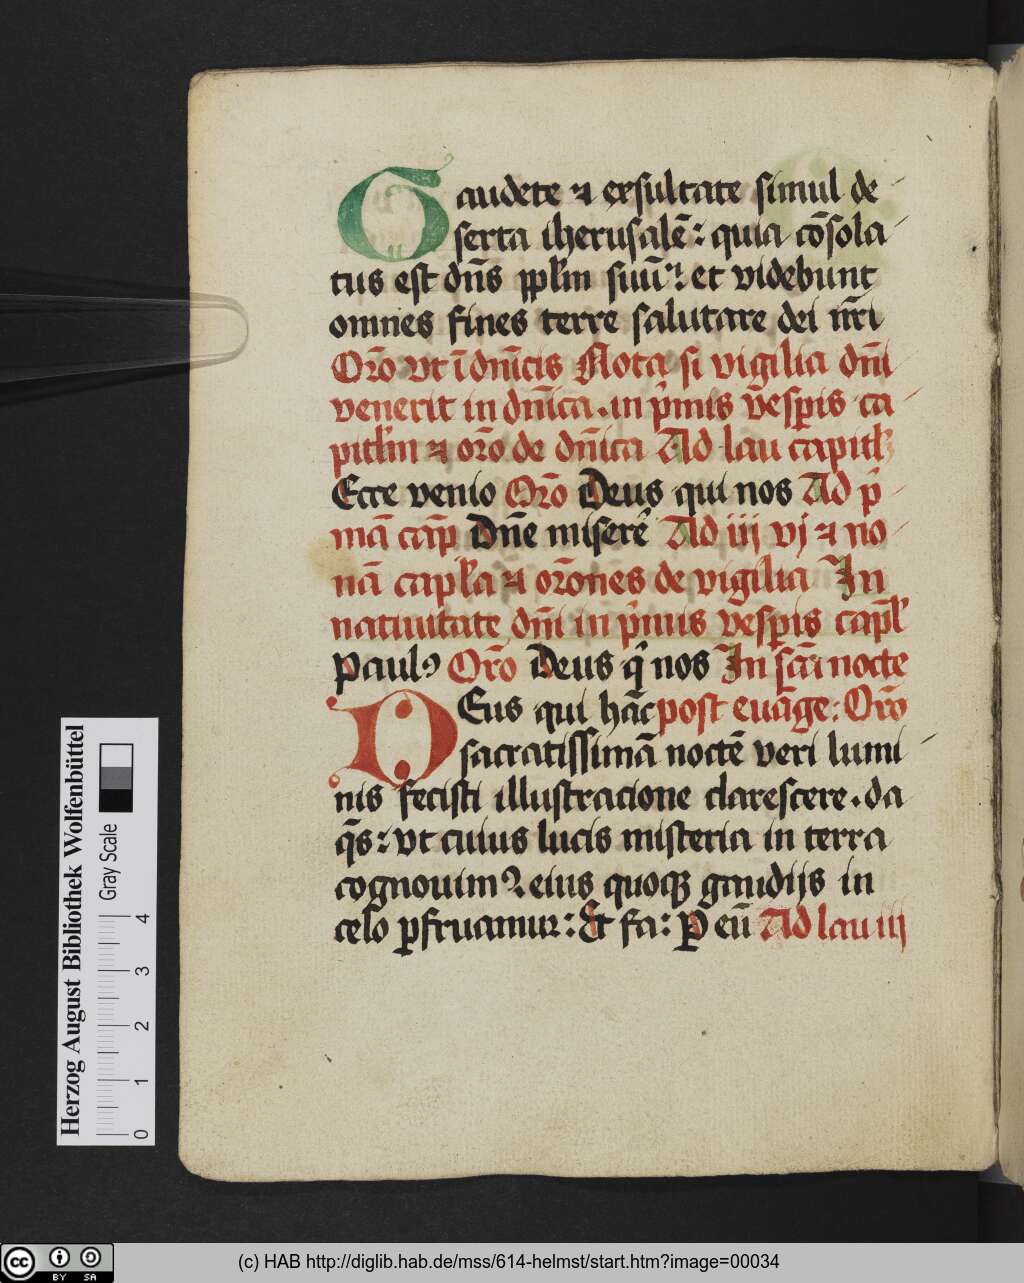 Gaudete ⁊ exsultate simul de
serta iherusalē: quia cōsola
tus est dn̄s pplm̄ suū: et videbunt
omnes fines terre salutare dei nr̄i
Oro̅ vt ī dn̄icis Nota si vigilia dn̄i
venerit in dn̄ica. in p̄mis vēsp̄is ca
pitlm̄ ⁊ oro̅ de dn̄ica Ad lau capitl̄
Ecce venio Oro̅ Deus qui nos Ad p̄
mā cap̄ Dn̄e misere Ad iij vj ⁊ no
nā capl̄a ⁊ oro̅nes de vigilia In
natiuitate dn̄i in p̄mis vēsp̄is capl̄
Paulꝰ Oro̅ Deus q̄ nos In scā nocte
DEus qui hāc post euāge: Oro̅
sacratissimā noctē veri lumi
nis fecisti illustracione clarescere. da
q̄s: vt cuius lucis misteria in terra
cognouim⁹ eius quoqꝫ gaudijs in
celo ꝑfruamur: Et fa: P eū Ad lau iij
Herzog August Bibliothek Wolfenbüttel
Gray Scale
0 1 2 3 4
cc BY SA
(c) HAB http://diglib.hab.de/mss/614-helmst/start.htm?image=00034